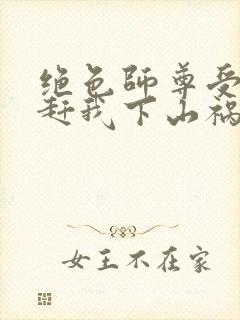 绝色師尊受
赶我下山祸
女王不在家